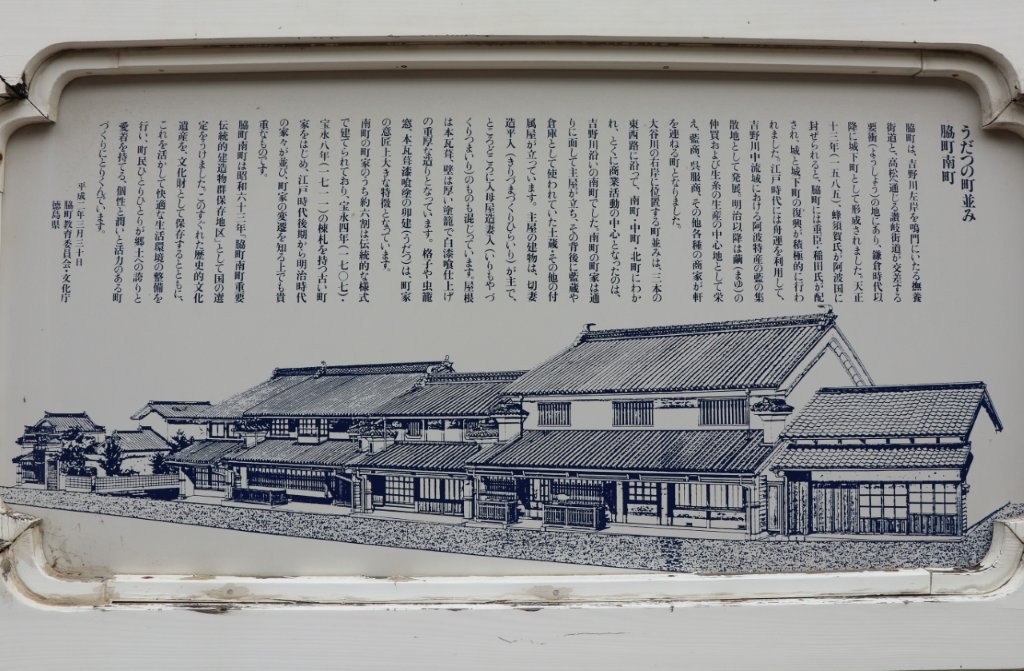 うだつの町並み
脇町南町
脇町は、吉野川左岸を鳴門にいたる撫養
街道と、高松へ通じる讃岐街道が交差する
要衝(ようしょう)の地にあり、鎌倉時代以
降に城下町として形成されました。天正
十三年(一五八五)蜂須賀氏が阿波国に
封ぜられると、脇町には重臣・稲田氏が配
され、城と城下町の復興が積極的に行わ
れました。江戸時代には舟運を利用して、
吉野川中流域における阿波特産の藍の集
散地として発展、明治以降は繭(まゆ)の
仲買および生糸の生産の中心地として栄
え、藍商、呉服商、その他各種の商家が軒
を連ねる町となりました。
大谷川の右岸に位置する町並みは、三本の
東西路に沿って、南町・中町・北町にわか
れ、とくに商業活動の中心となったのは、
吉野川沿いの南町でした。南町の町家は通
りに面して主屋が立ち、その背後に藍蔵や
倉庫として使われていた土蔵、その他の付
属屋が立っています。主屋の建物は、切妻
造平入(きりづまづくりひらいり)が主で、
ところどころに入母屋造妻入(いりもやづ
くりつまいり)のものも混じっています。屋根
は本瓦葺、壁は厚い塗籠で白漆喰仕上げ
の重厚な造りとなっています。格子や虫籠
窓、本瓦葺漆喰塗の卯建(うだつ)は、町家
の意匠上大きな特徴となっています。
南町の町家のうち約六割は伝統的な様式
で建てられており、宝永四年(一七〇七)・
宝永八年(一七一一)の棟札を持つ古い町
家をはじめ、江戸時代後期から明治時代
の家々が並び、町家の変遷を知る上でも貴
重なものです。
脇町南町は昭和六十三年、「脇町南町重要
伝統的建造物群保存地区」として国の選
定をうけました。このすぐれた歴史的文化
遺産を、文化財として保存するとともに、
これを活かして快適な生活環境の整備を
行い、町民ひとりひとりが郷土への誇りと
愛着を持てる、個性と活力のある町
づくりにとりくんでいます。
平成二年三月三十日
脇町教育委員会・文化庁
徳島県